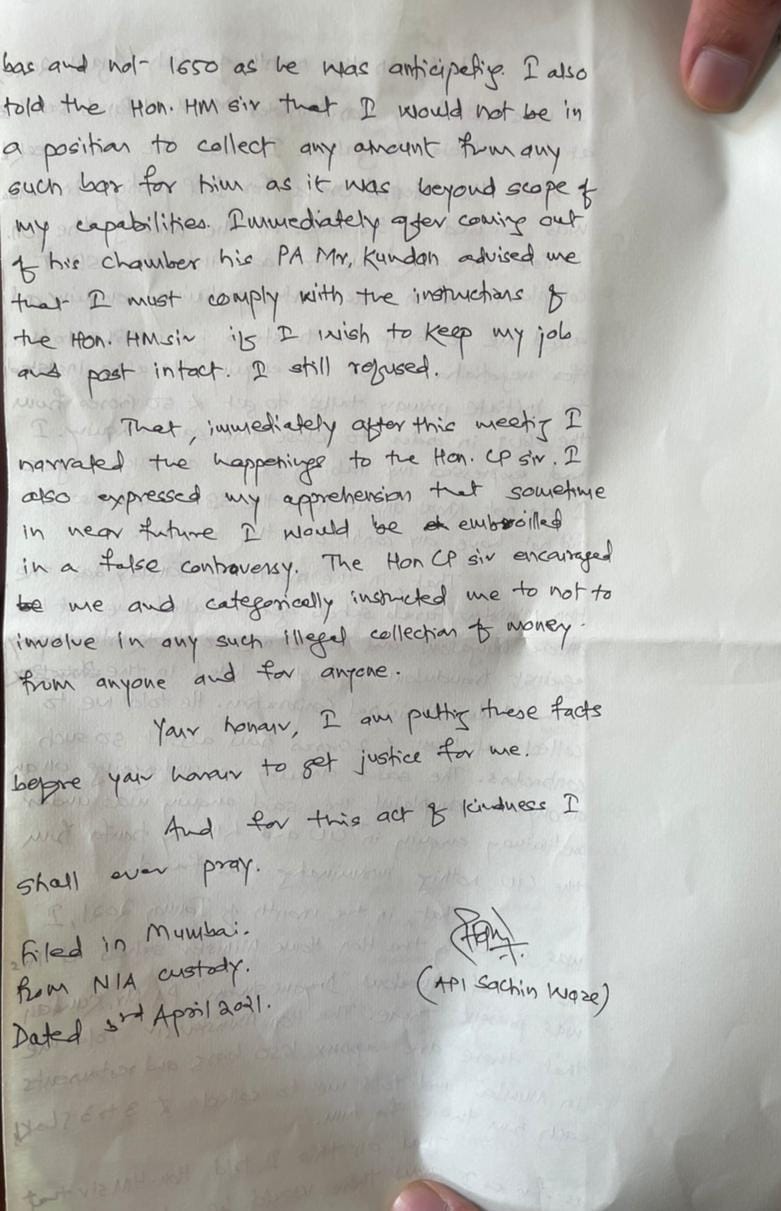 bas and not 1650 as he was anticipating. I also
told the Hon. HM sir that I would not be in
a position to collect any amount from any
such bar for him as it was beyond scope of
my capabilities. Immediately after coming out
of his chamber his PA Mr. Kundan advised me
that I must comply with the instructions of
the Hon. HM sir if I wish to keep my job
and post intact. I still refused.
That, immediately after this meeting I
narrated the happenings to the Hon. CP sir. I
also expressed my apprehension that sometime
in near future I would be embroilled
in a false controversy. The Hon CP sir encouraged
me and categorically instructed me to not to
involve in any such illegal collection of money
from anyone and for anyone.
Your honour, I am putting these facts
before your honour to get justice for me.
And for this act of kindness I
shall ever pray.
Filed in Mumbai.
From NIA custody.
Dated 3rd April 2021.
(API Sachin Waze)